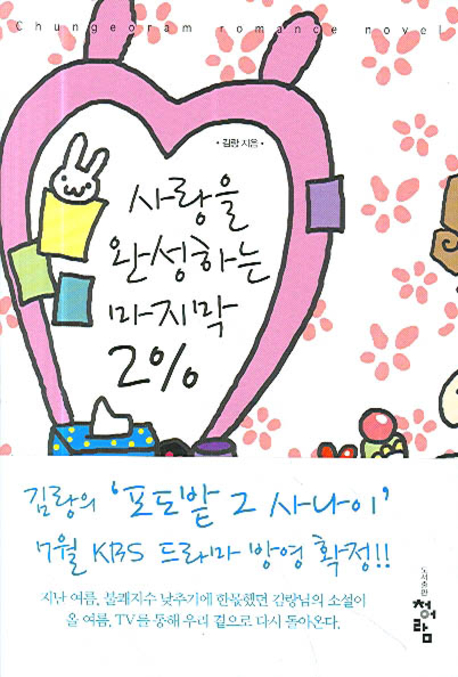 Chungeoram romance novel
• 김랑 지음 •
사랑을
완성하는
마지막
2%
김랑의 '포도밭 그 사나이'
7월 KBS 드라마 방영 확정!!
지난 여름, 불쾌지수 낮추기에 한몫했던 김랑님의 소설이
올 여름, TV를 통해 우리 곁으로 다시 돌아온다.
도서출판
청어람